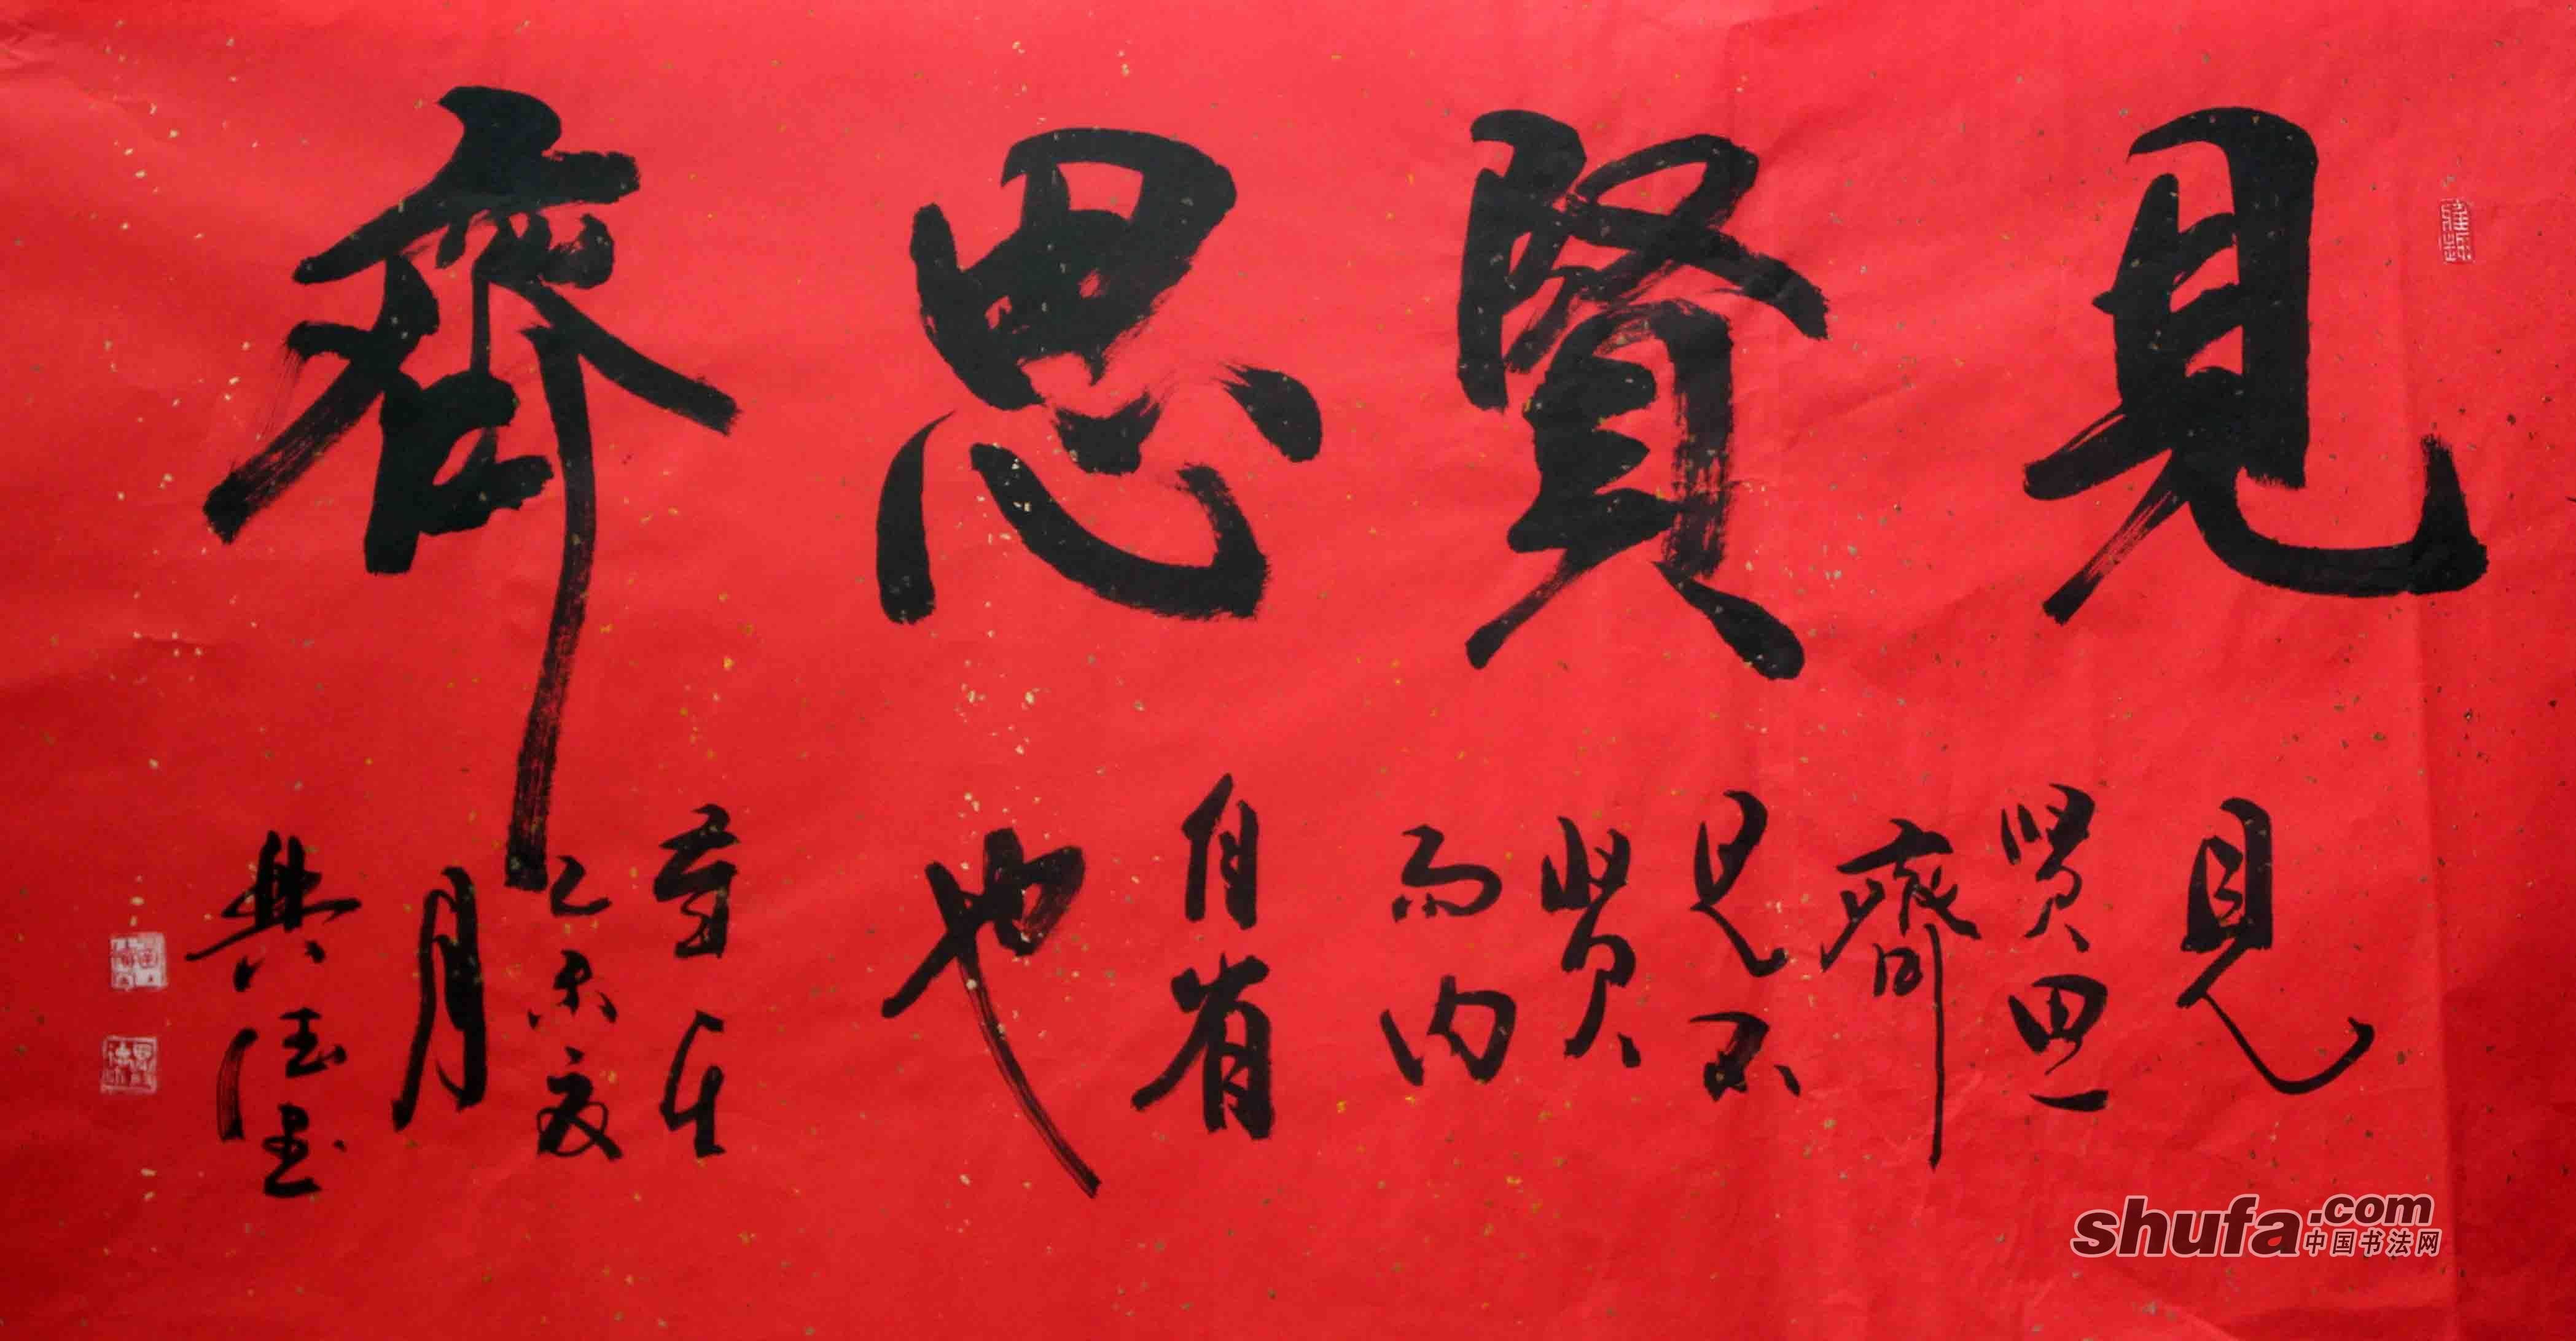 見賢思齊
見
贤思
齊
見不
贤
而内
自省
也
乙未夏
月
典法书
shufa.com
中国书法网